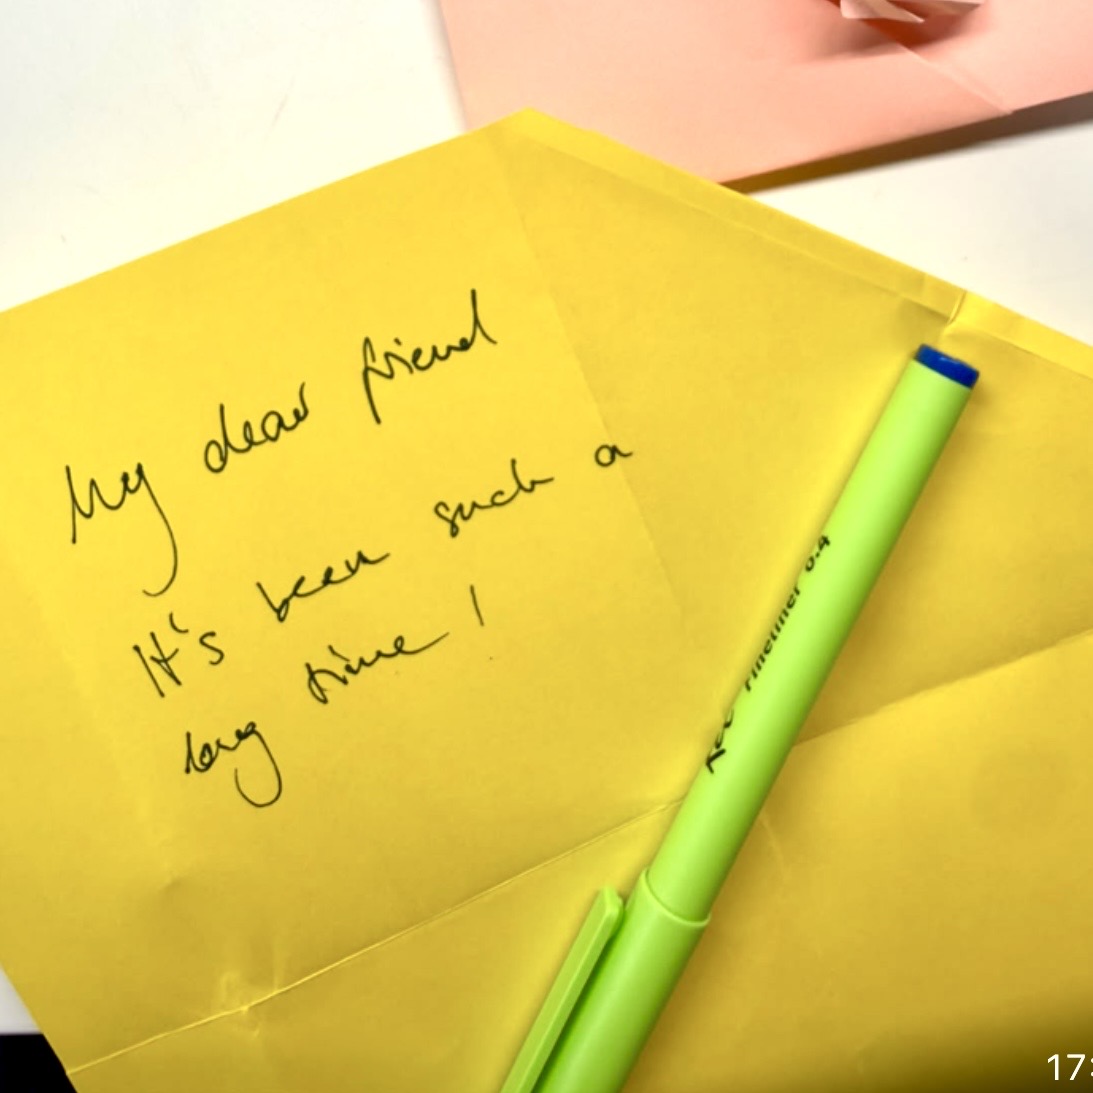 My dear friend
It's been such a
long time!
Fineliner 0.4
17: